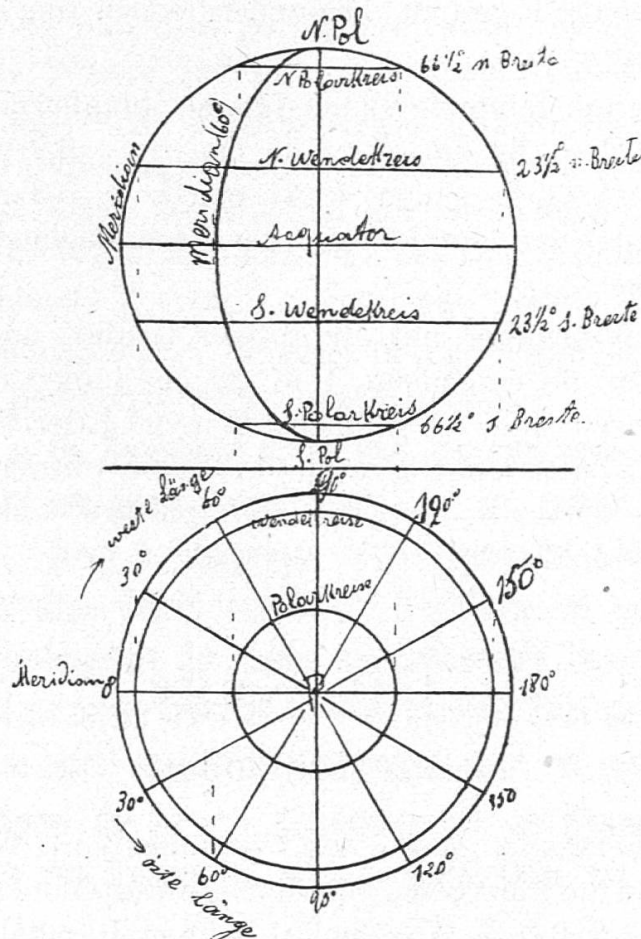 N. Pol
66½° n Breite
N Polarkreis
Meridian (60°)
N. Wendekreis
23½° n. Breite
Meridian
Aequator
S. Wendekreis
23½° s. Breite
S. Polarkreis
66½° s Breite.
S. Pol
westl Länge
60°
90°
120°
Wendekreise
30°
150°
Polarkreise
Meridian 0
P
180°
30°
150
60°
120°
90°
östl länge